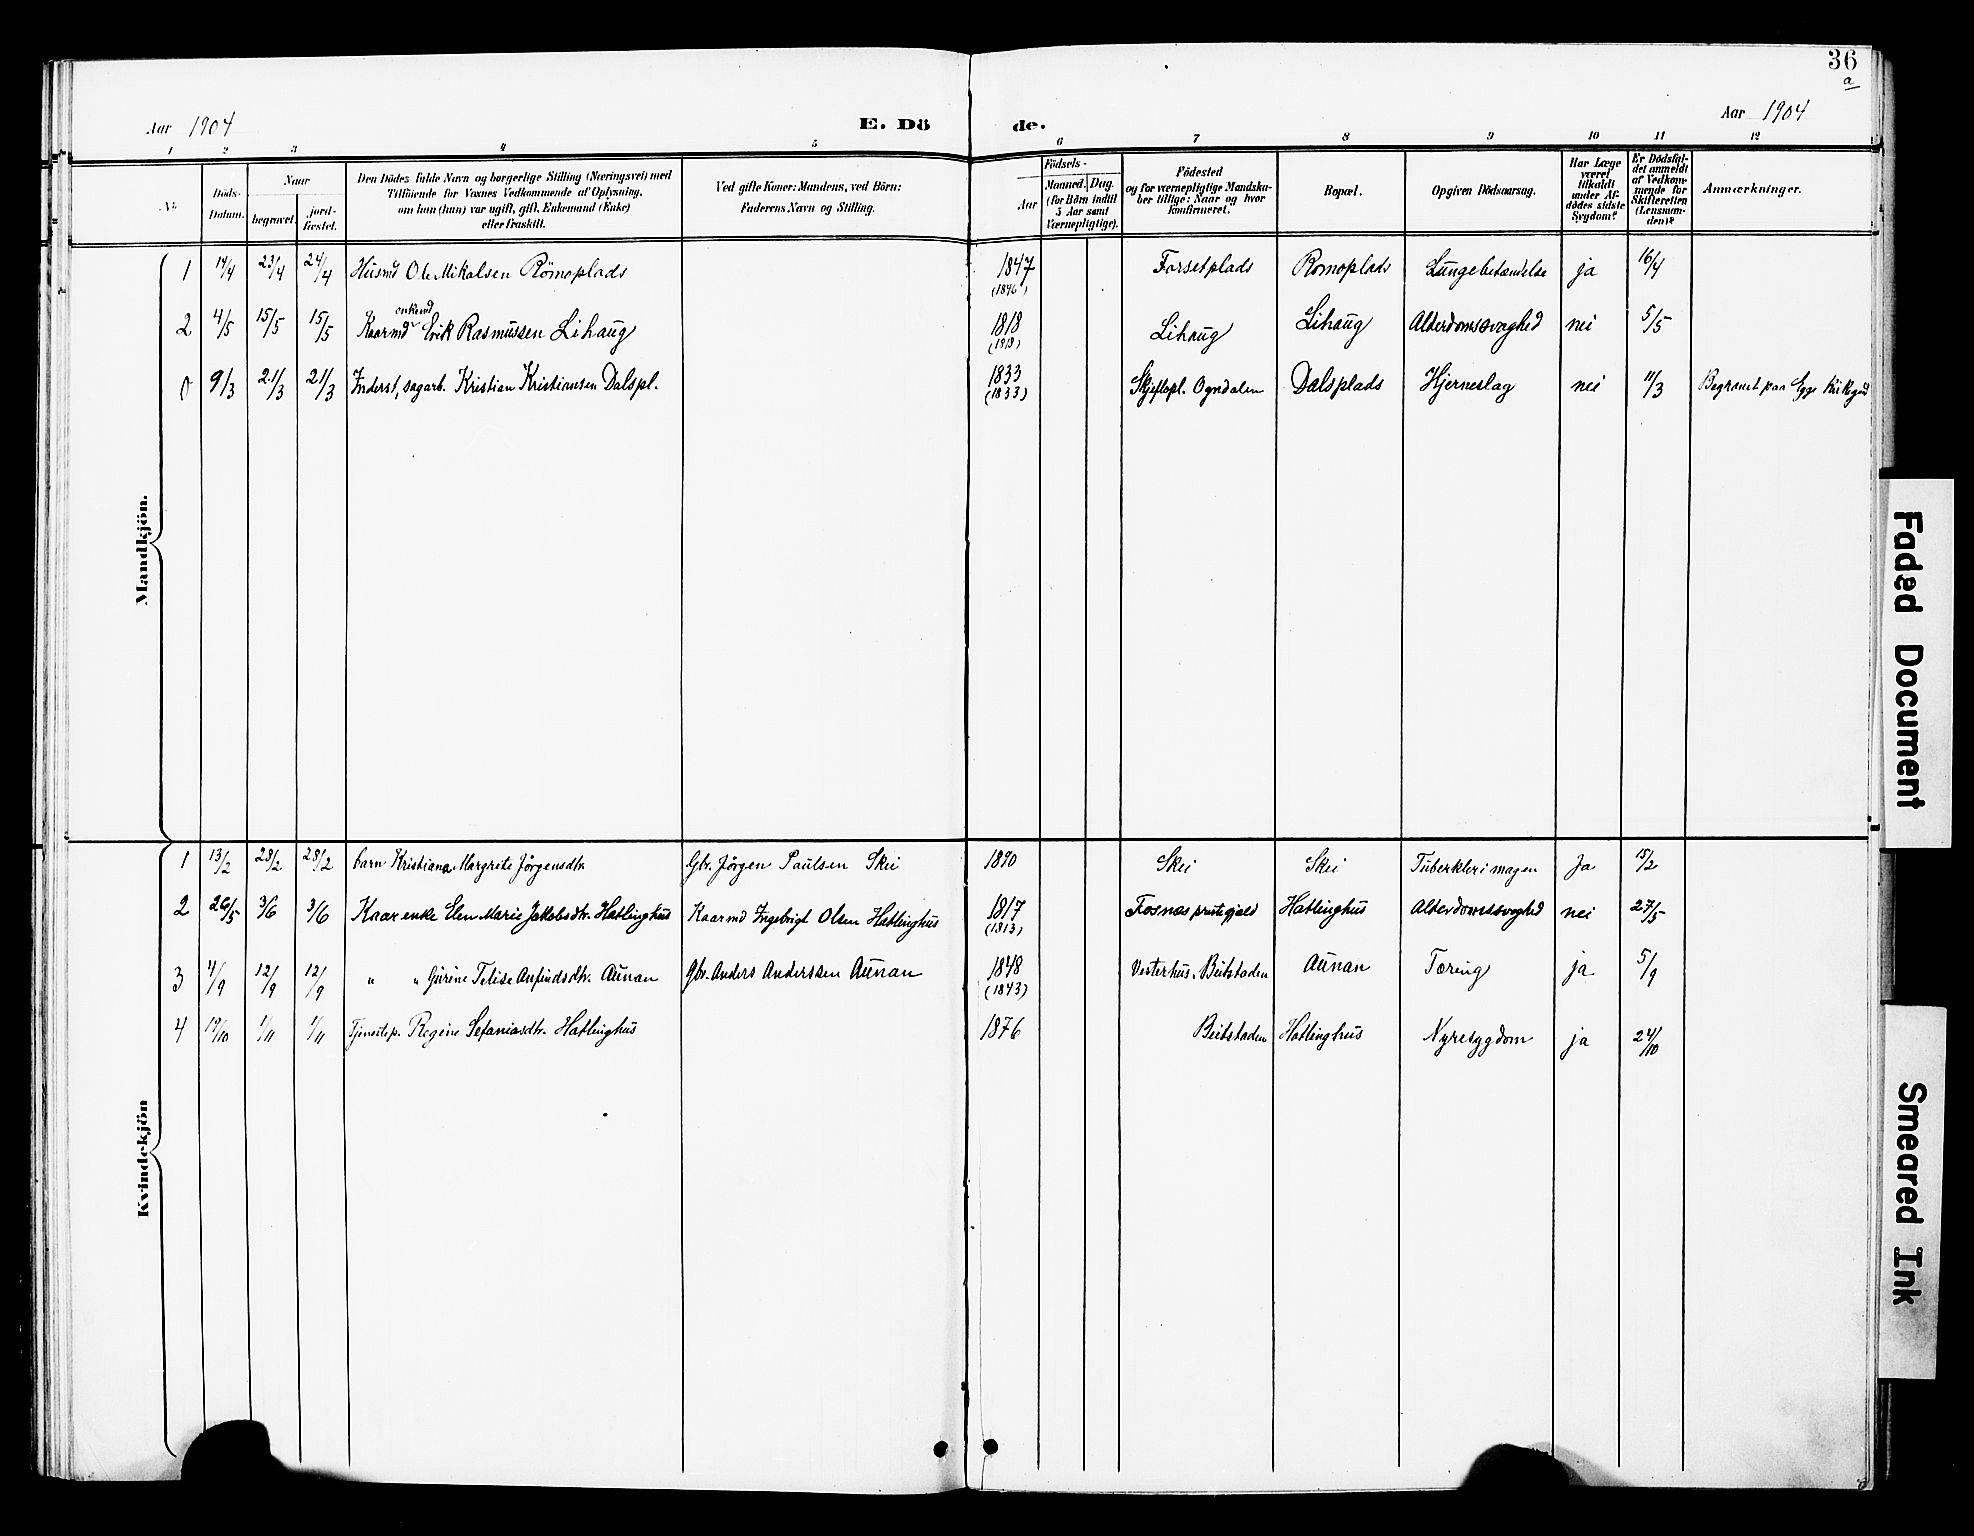 36
a
Aar 1904 E. Dö de. Aar 1904
1 2 3 4 5 6 7 8 9 10 11 12
No.
Döds-
Datum.
Naar
begravet.
jord-
fæstet.
Den Dödes fulde Navn og borgerlige Stilling (Næringsvei) med
Tilföiende for Voxnes Vedkommende af Oplysning,
om han (hun) var ugift, gift, Enkemand (Enke)
eller fraskilt.
Ved gifte Koner: Mandens, ved Börn:
Faderens Navn og Stilling.
Födsels-
Aar
Maaned. Dag.
(for Börn indtil
5 Aar samt
Værnepligtige).
Födested
og for værnepligtige Mandska-
ber tillige: Naar og hvor
konfirmeret.
Bopæl.
Opgiven Dödsaarsag.
Har Læge
været
tilkaldt
under Af-
dödes sidste
Sygdom?
Er Dödsfal-
det anmeldt
af Vedkom-
mende for
Skifteretten
(Lensman-
den)?
Anmærkninger.
Mandkjön.
1 14/4 23/4 24/4 Husmd Ole Mikalsen Römoplads 1847 Forsetplads Romoplads Lungebetændelse ja 16/4
(1846)
enkemd
2 4/5 15/5 15/5 Kaarmd Erik Rasmussen Lihaug 1818 Lihaug Lihaug Alderdomssvaghed nei 5/5
(1818)
0 9/3 21/3 21/3 Inderst, sagarb. Kristian Kristiansen Dalspl. 1833 Skjeflopl. Ogndalen Dalsplads Hjerneslag nei 11/3 Begravet paa Egge Kirkegd
(1833)
Kvindekjön
1 13/2 28/2 28/2 barn Kristiana Margrete Jørgensdtr. Gbr. Jørgen Paulsen Skei 1890 Skei Skei Tuberkler i magen Ja 15/2
2 26/5 3/6 3/6 Kaarenke Elen Marie Jakobsdtr. Hatlinghus Kaarmd Ingebrigt Olsen Hatlinghus 1817 Fosnas prestegjeld Hatlinghus Alderdomssvaghed nei 27/5
(1813)
3 4/9 12/9 12/9 " " Gurine Telise Anfindsdtr. Aunan Gbr. Anders Anderssen Aunan 1848 Vesterhus, Beitstaden Aunan Tæring ja 5/9
(1843)
4 19/10 1/11 1/11 Tjenestep. Regine Sefaniasdtr. Hatlinghus 1876 Beitstaden Hatlinghus Nyresygdom ja 24/10
Faded Document
Smeared Ink